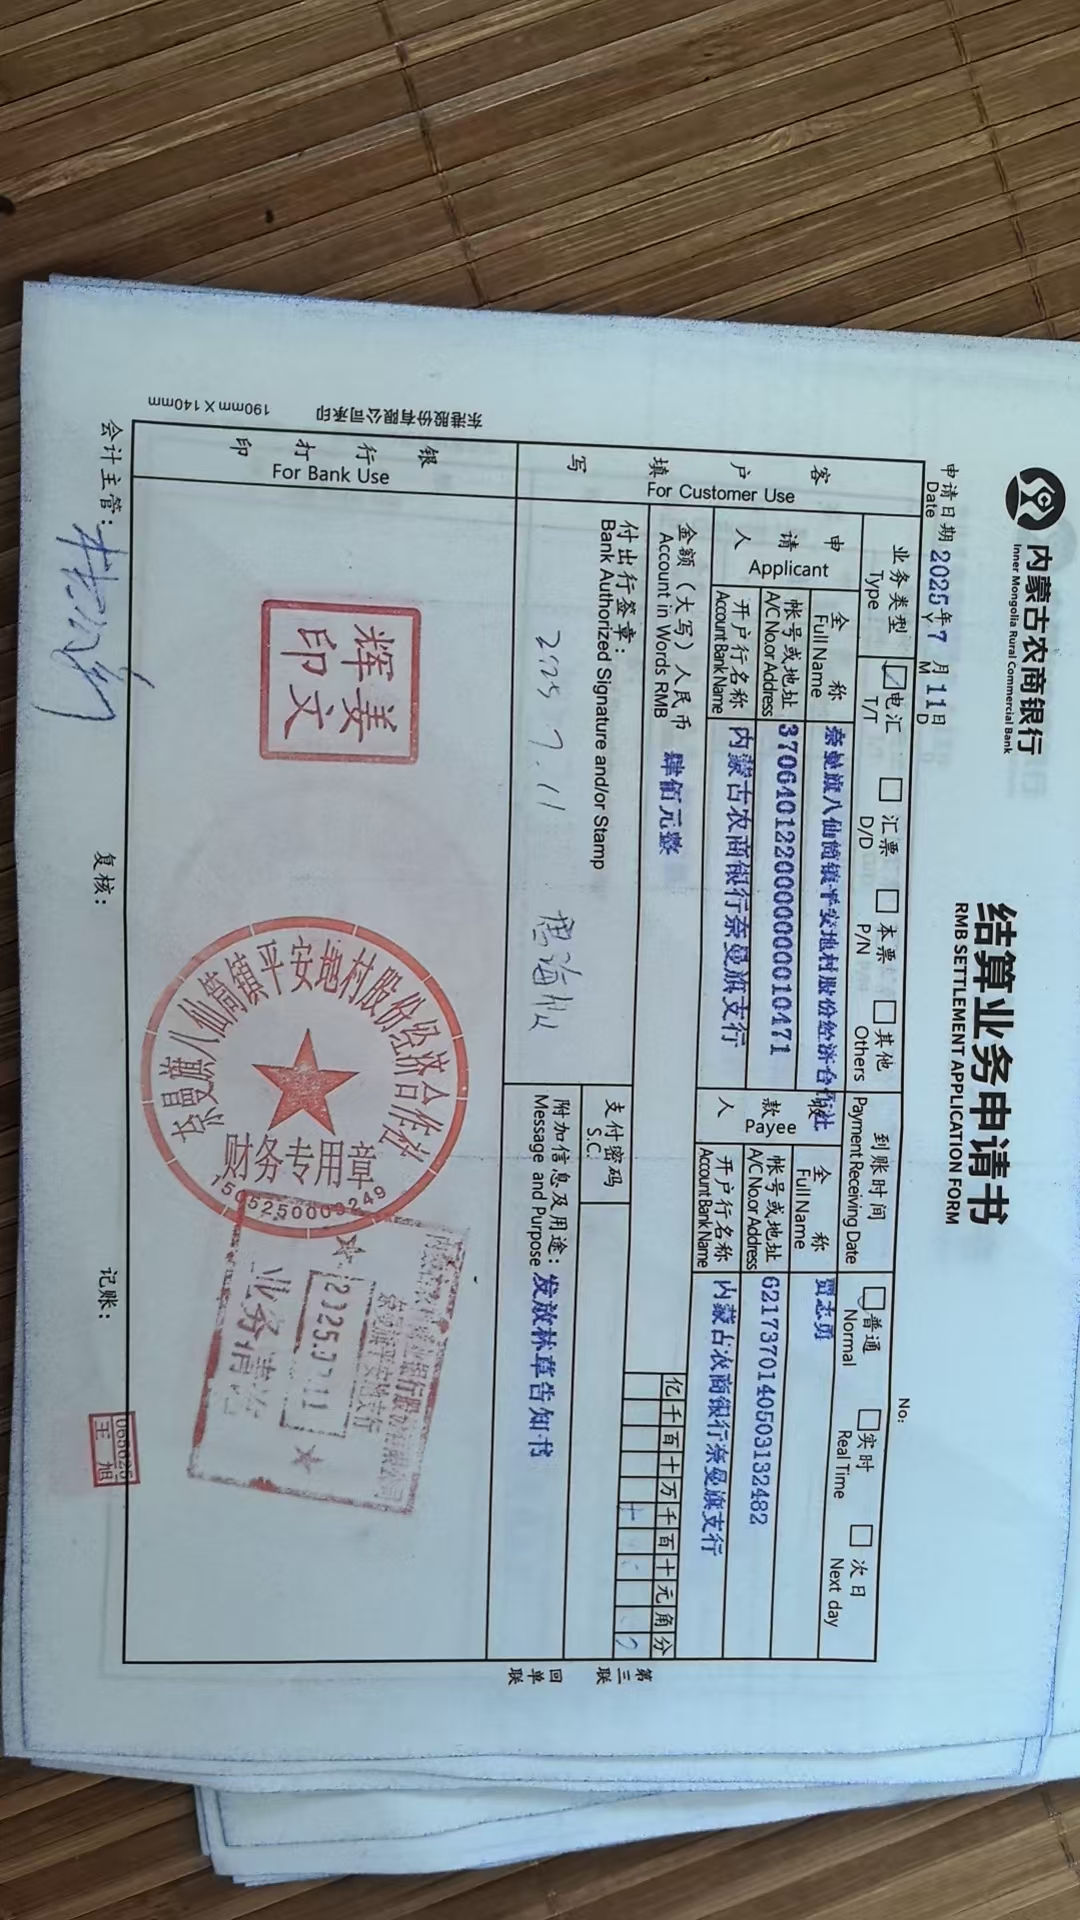 内蒙古农商银行
Inner Mongolia Rural Commercial Bank
结算业务申请书
RMB SETTLEMENT APPLICATION FORM
申请日期 2025年7月11日
Date Y M D
No:
业务类型 电汇 汇票 本票 其他 到账时间 普通 实时 次日
Type T/T D/D P/N Others Payment Receiving Date Normal Real Time Next day
客户填写
For Customer Use
申请人
Applicant
全称 奈曼旗八仙筒镇平安地村股份经济合作社
Full Name
帐号或地址 370640122000000010471
A/C No.or Address
开户行名称 内蒙古农商银行奈曼旗支行
Account Bank Name
收款人
Payee
全称 贾志勇
Full Name
帐号或地址 6217370140503132482
A/C No.or Address
开户行名称 内蒙古农商银行奈曼旗支行
Account Bank Name
金额（大写）人民币 肆佰元整
Account in Words RMB
亿千百十万千百十元角分
付出行签章：
Bank Authorized Signature and/or Stamp
2025.7.11
支付密码
S.C.
附加信息及用途：发放林草告知书
Message and Purpose
银行打印
For Bank Use
姜辉文印
奈曼旗八仙筒镇平安地村股份经济合作社
财务专用章
2025.07.11
业务清讫
会计主管： 复核： 记账：
王旭
第三联 回单联
东港股份有限公司承印 190mm×140mm